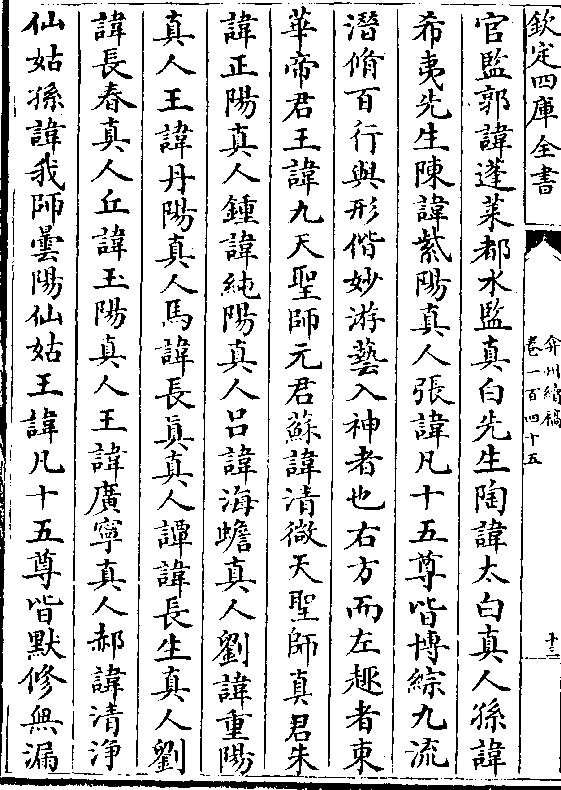 欽定四庫全書
弇州續稿
卷一百四十五
十三
官監郭諱蓬萊都水監真白先生陶諱太白真人孫諱
希夷先生陳諱紫陽真人張諱凡十五尊皆博綜九流
潛脩百行與形偕妙游藝入神者也右方而左趣者東
華帝君王諱九天聖師元君蘇諱清微天聖師真君朱
諱正陽真人鍾諱純陽真人呂諱海蟾真人劉諱重陽
真人王諱丹陽真人馬諱長真真人譚諱長生真人劉
諱長春真人丘諱玉陽真人王諱廣寧真人郝諱清浄
仙姑孫諱我師曇陽仙姑王諱凡十五尊皆默修無漏